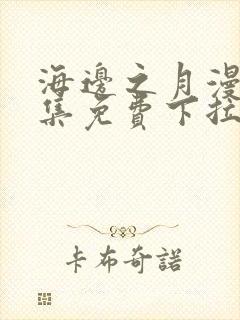 海邊之月漫
集免費下拉
卡布奇諾